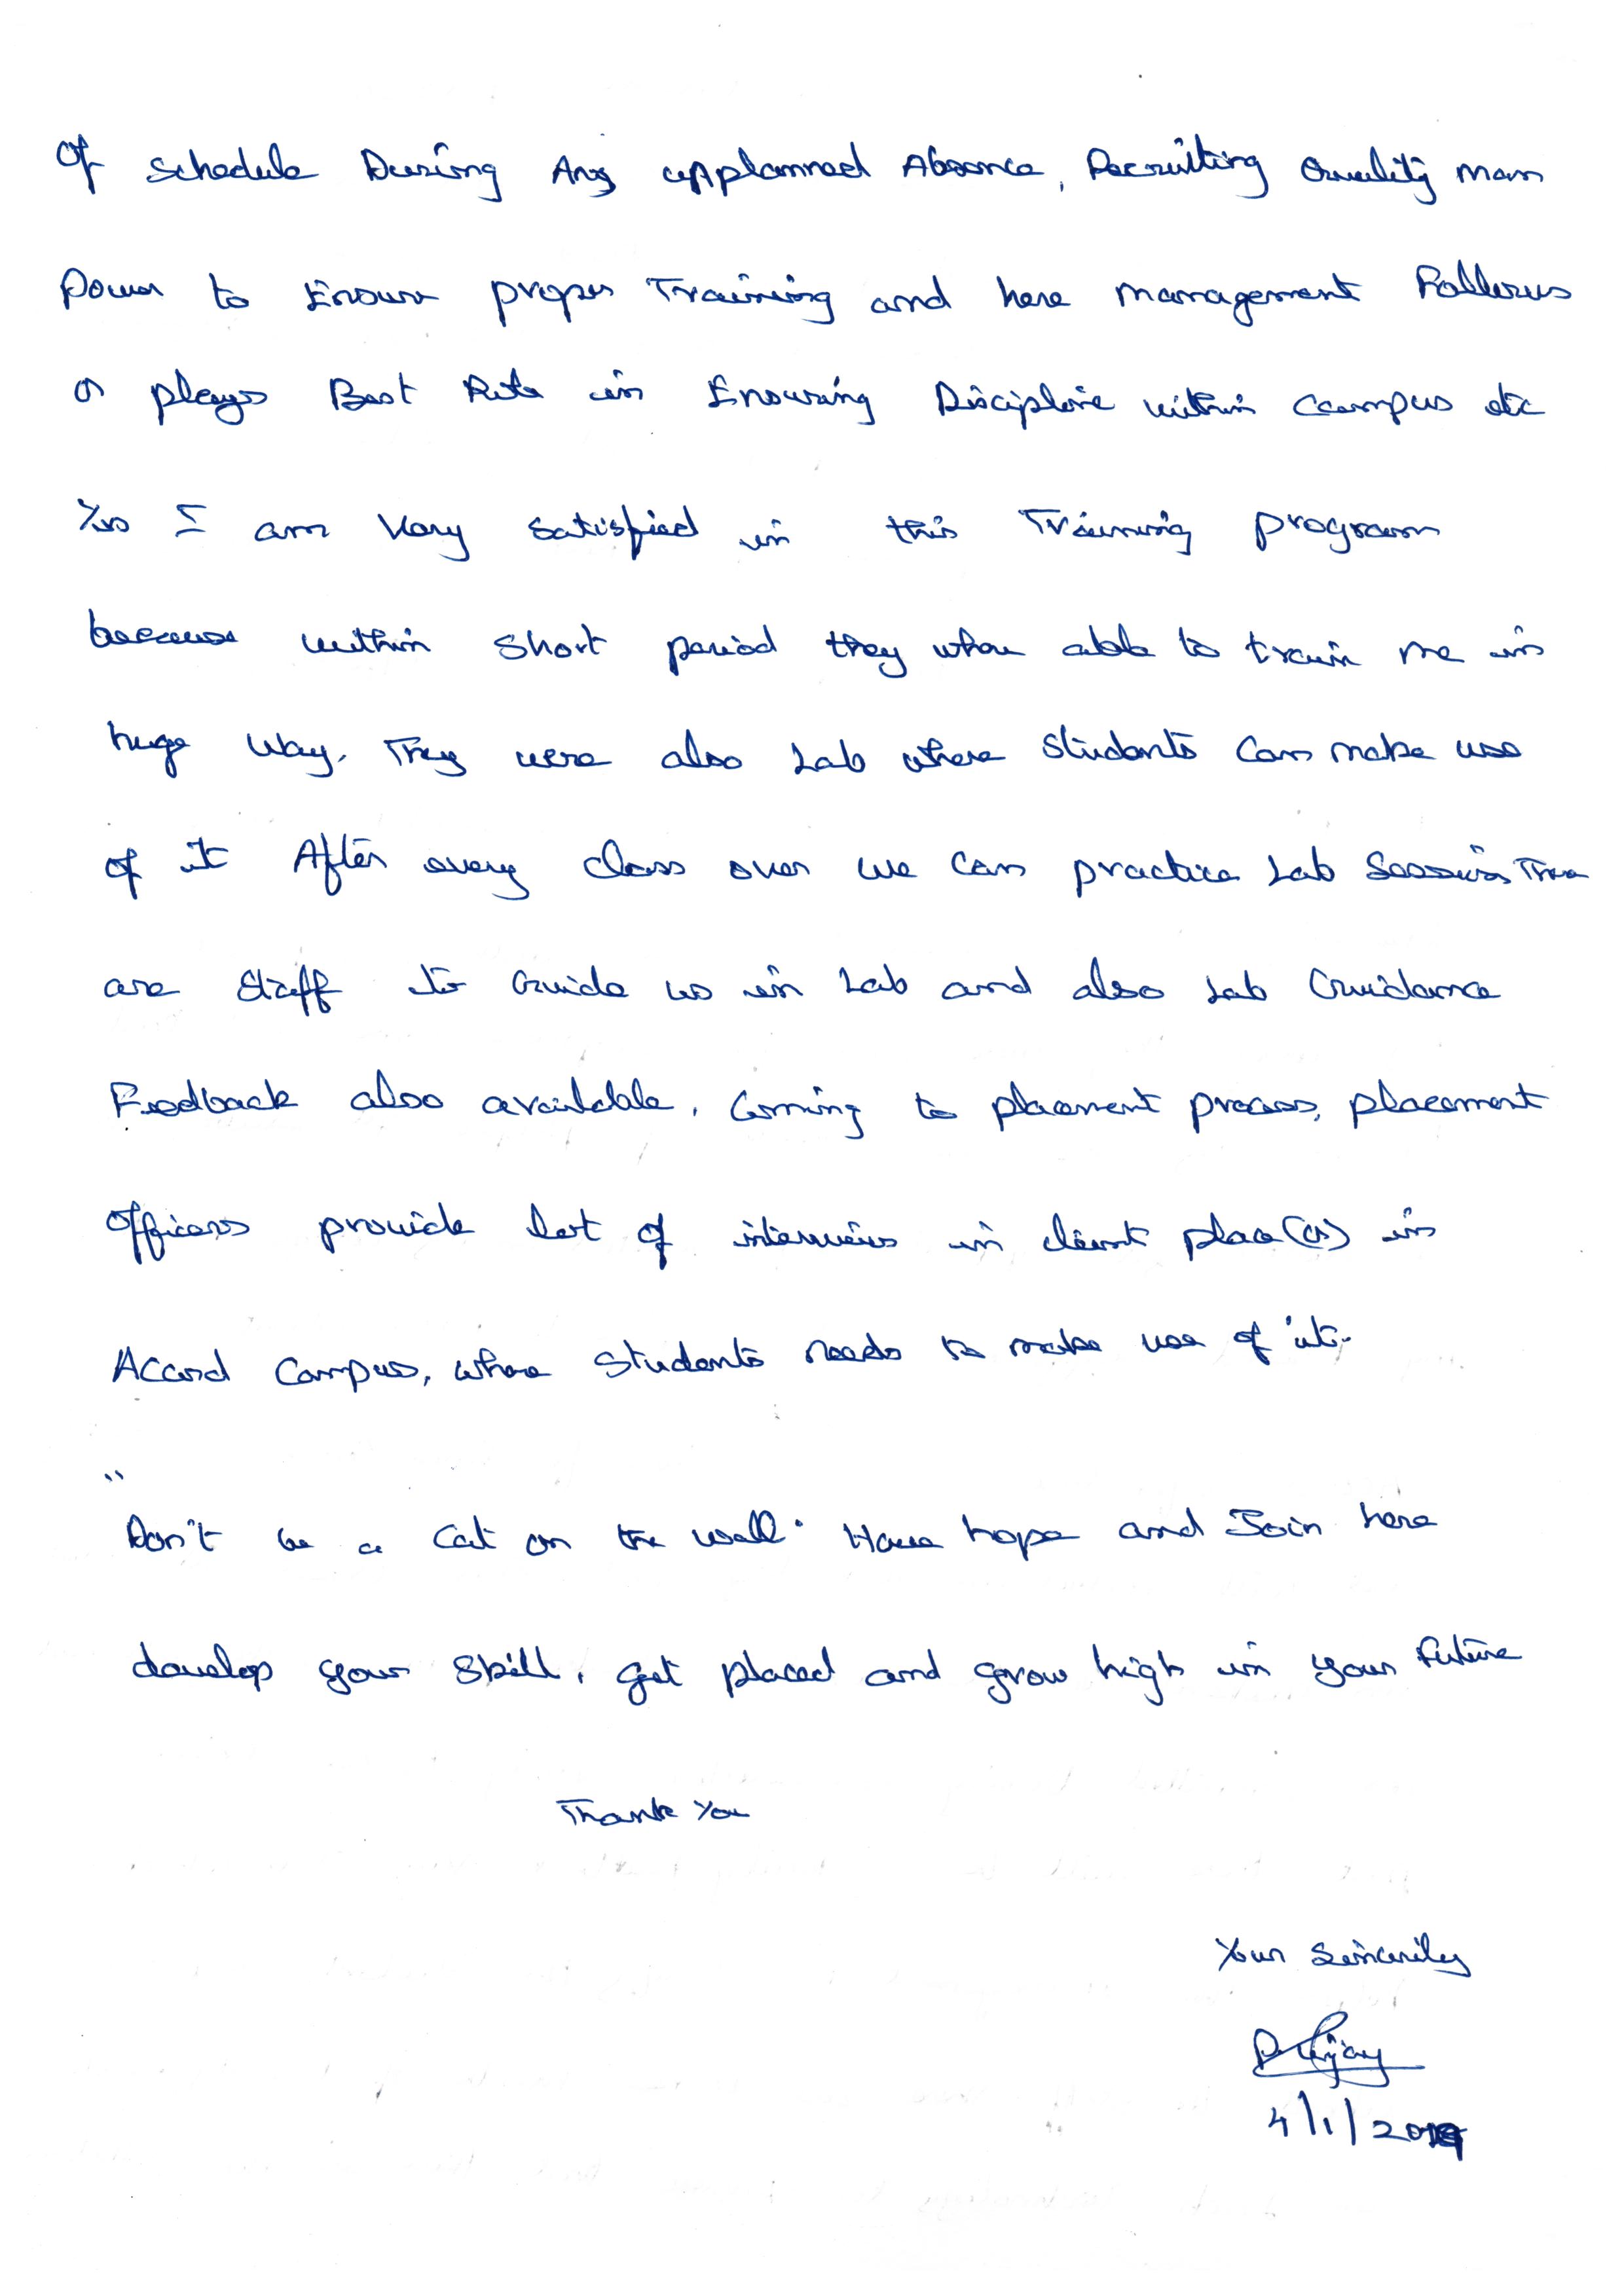 Of Schedule During Any upplanned Absence, Recruiting Quality man
Power to Ensure proper Training and here management Follows
or plays Best Role in Ensuring Discipline within Campus etc
Yes I am Very Satisfied in this Training program
because within Short period they whare able to train me in
huge Way. They were also Lab where Students Can make use
of it After every class over we Can practice Lab Session There
are Staff to Guide us in Lab and also Lab Guidance
Feedback also available. Coming to placement process, placement
officers provide lot of interviews in client place (or) in
Accord Campus, where Students needs to make use of it.
"Don't be a Cat on the wall. Have hope and Join here
develop your Skill, get placed and grow high in your Future
Thank You
Your Sincerily
4/1/2019